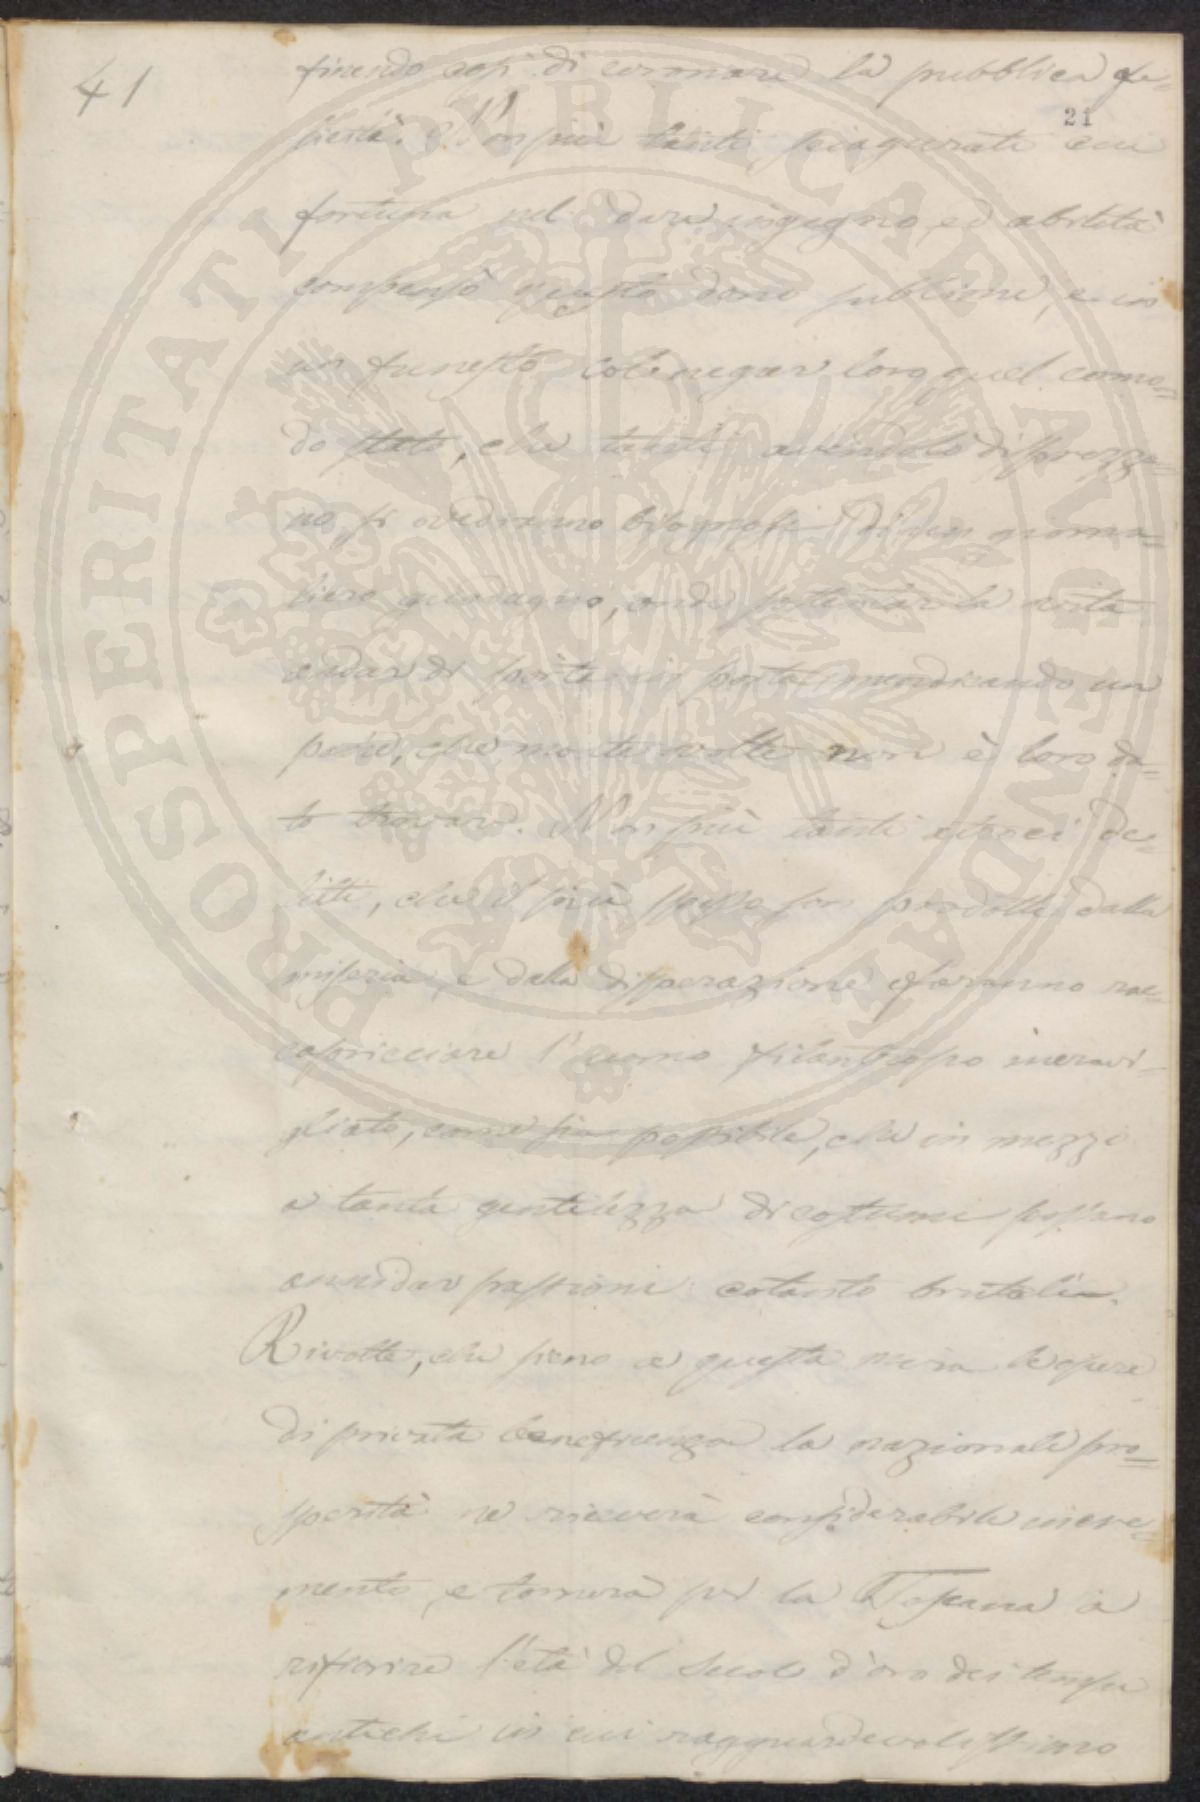 41
finendo così di coronare la pubblica fe=
21
licità. Non più tanti sciagurati cui
fortuna nel dare ingegno, ed abilità
compensò questo dono sublime, e in
un funesto col negar loro quel como=
do stato, che tanti avendolo disprezza=
no, si vedranno bisognosi di un giorna=
liero guadagno, onde sostentar la vita
andar di porta in porta mendicando un
pane, che molte volte non è loro da=
to trovare. Non più tanti atroci de=
litti, che il più spesso son prodotti dalla
miseria, e dalla disperazione faranno rac=
capricciare l'uomo filantropo meravi=
gliato, come sia possibile, che in mezzo
a tanta gentilezza di costumi possano
annidar passioni cotanto brutali.
Rivolte, che sieno a questa mira le opere
di privata beneficenza la nazionale pro=
sperità ne riceverà considerabile incre=
mento, e tornerà per la Toscana a
rifiorire l'età del secolo d'oro dei tempi
antichi in cui ragguardevolissimo
PROSPERITATI PUBLICAE AUGENDAE